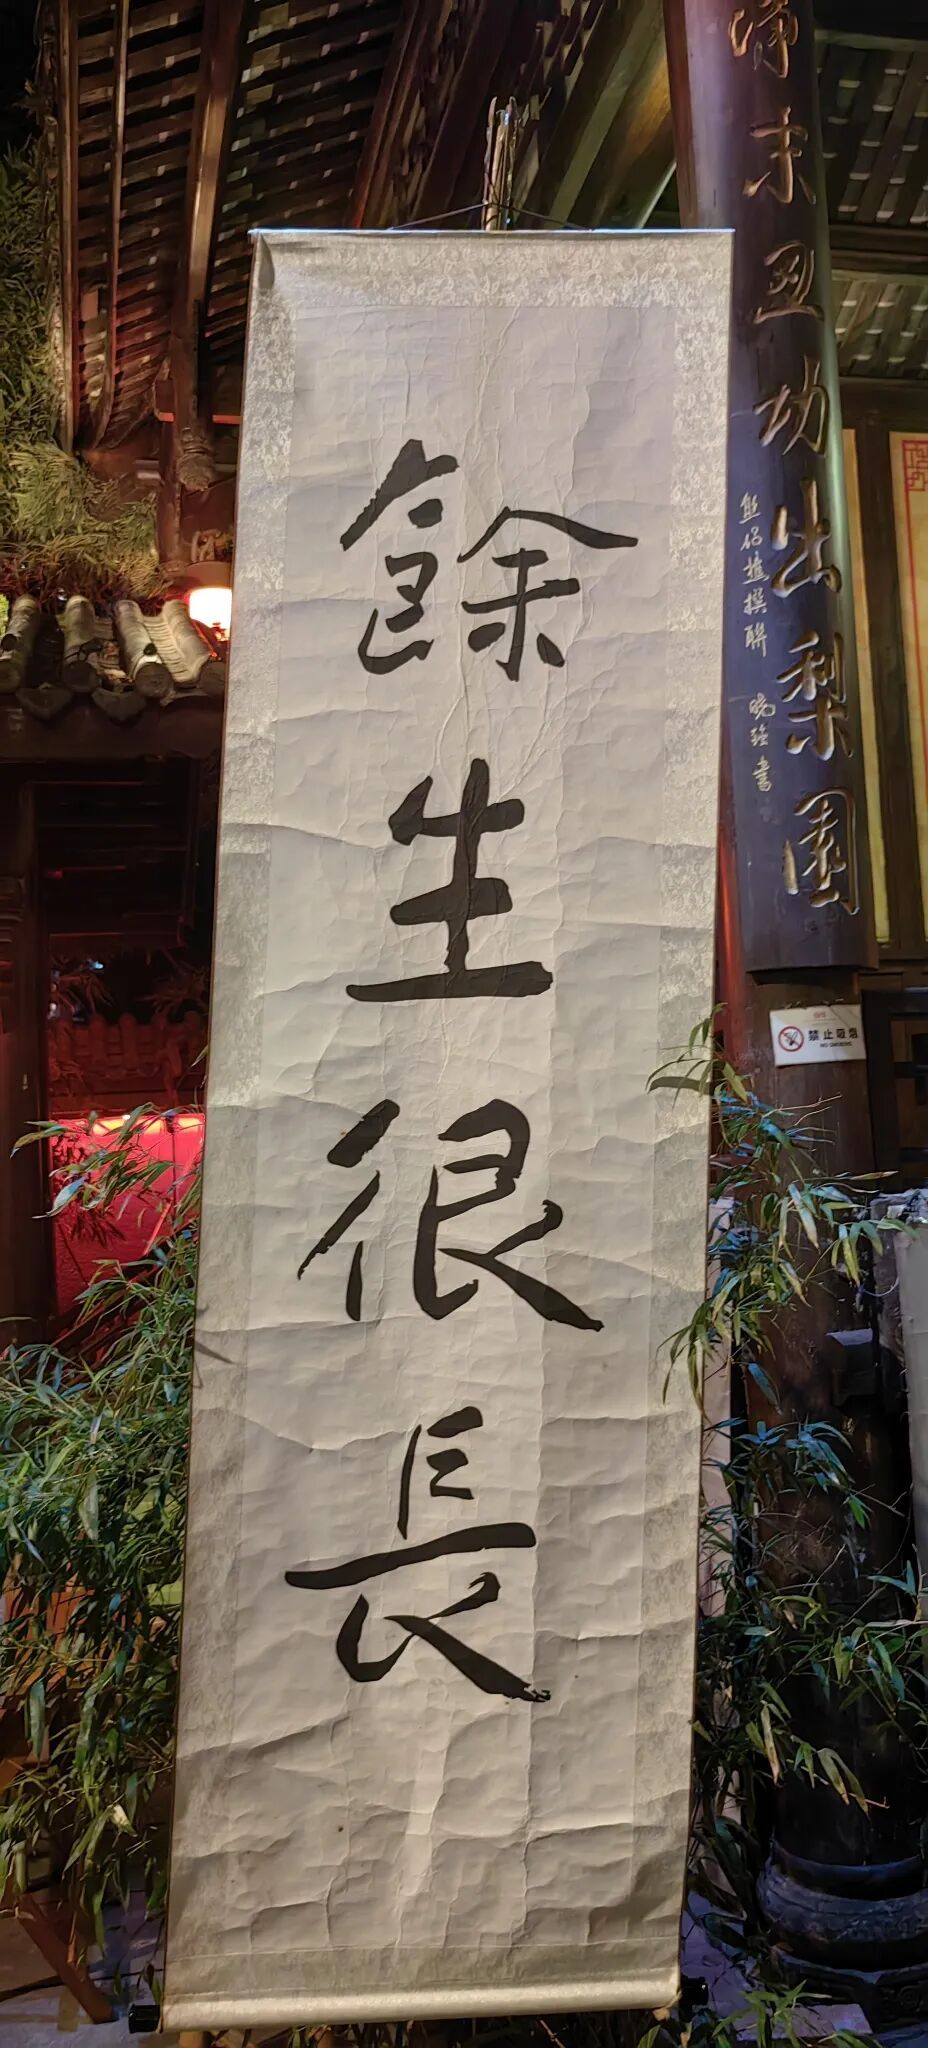 餘生很長
末丑功出梨園
撰聯
書
禁止吸烟
NO SMOKING